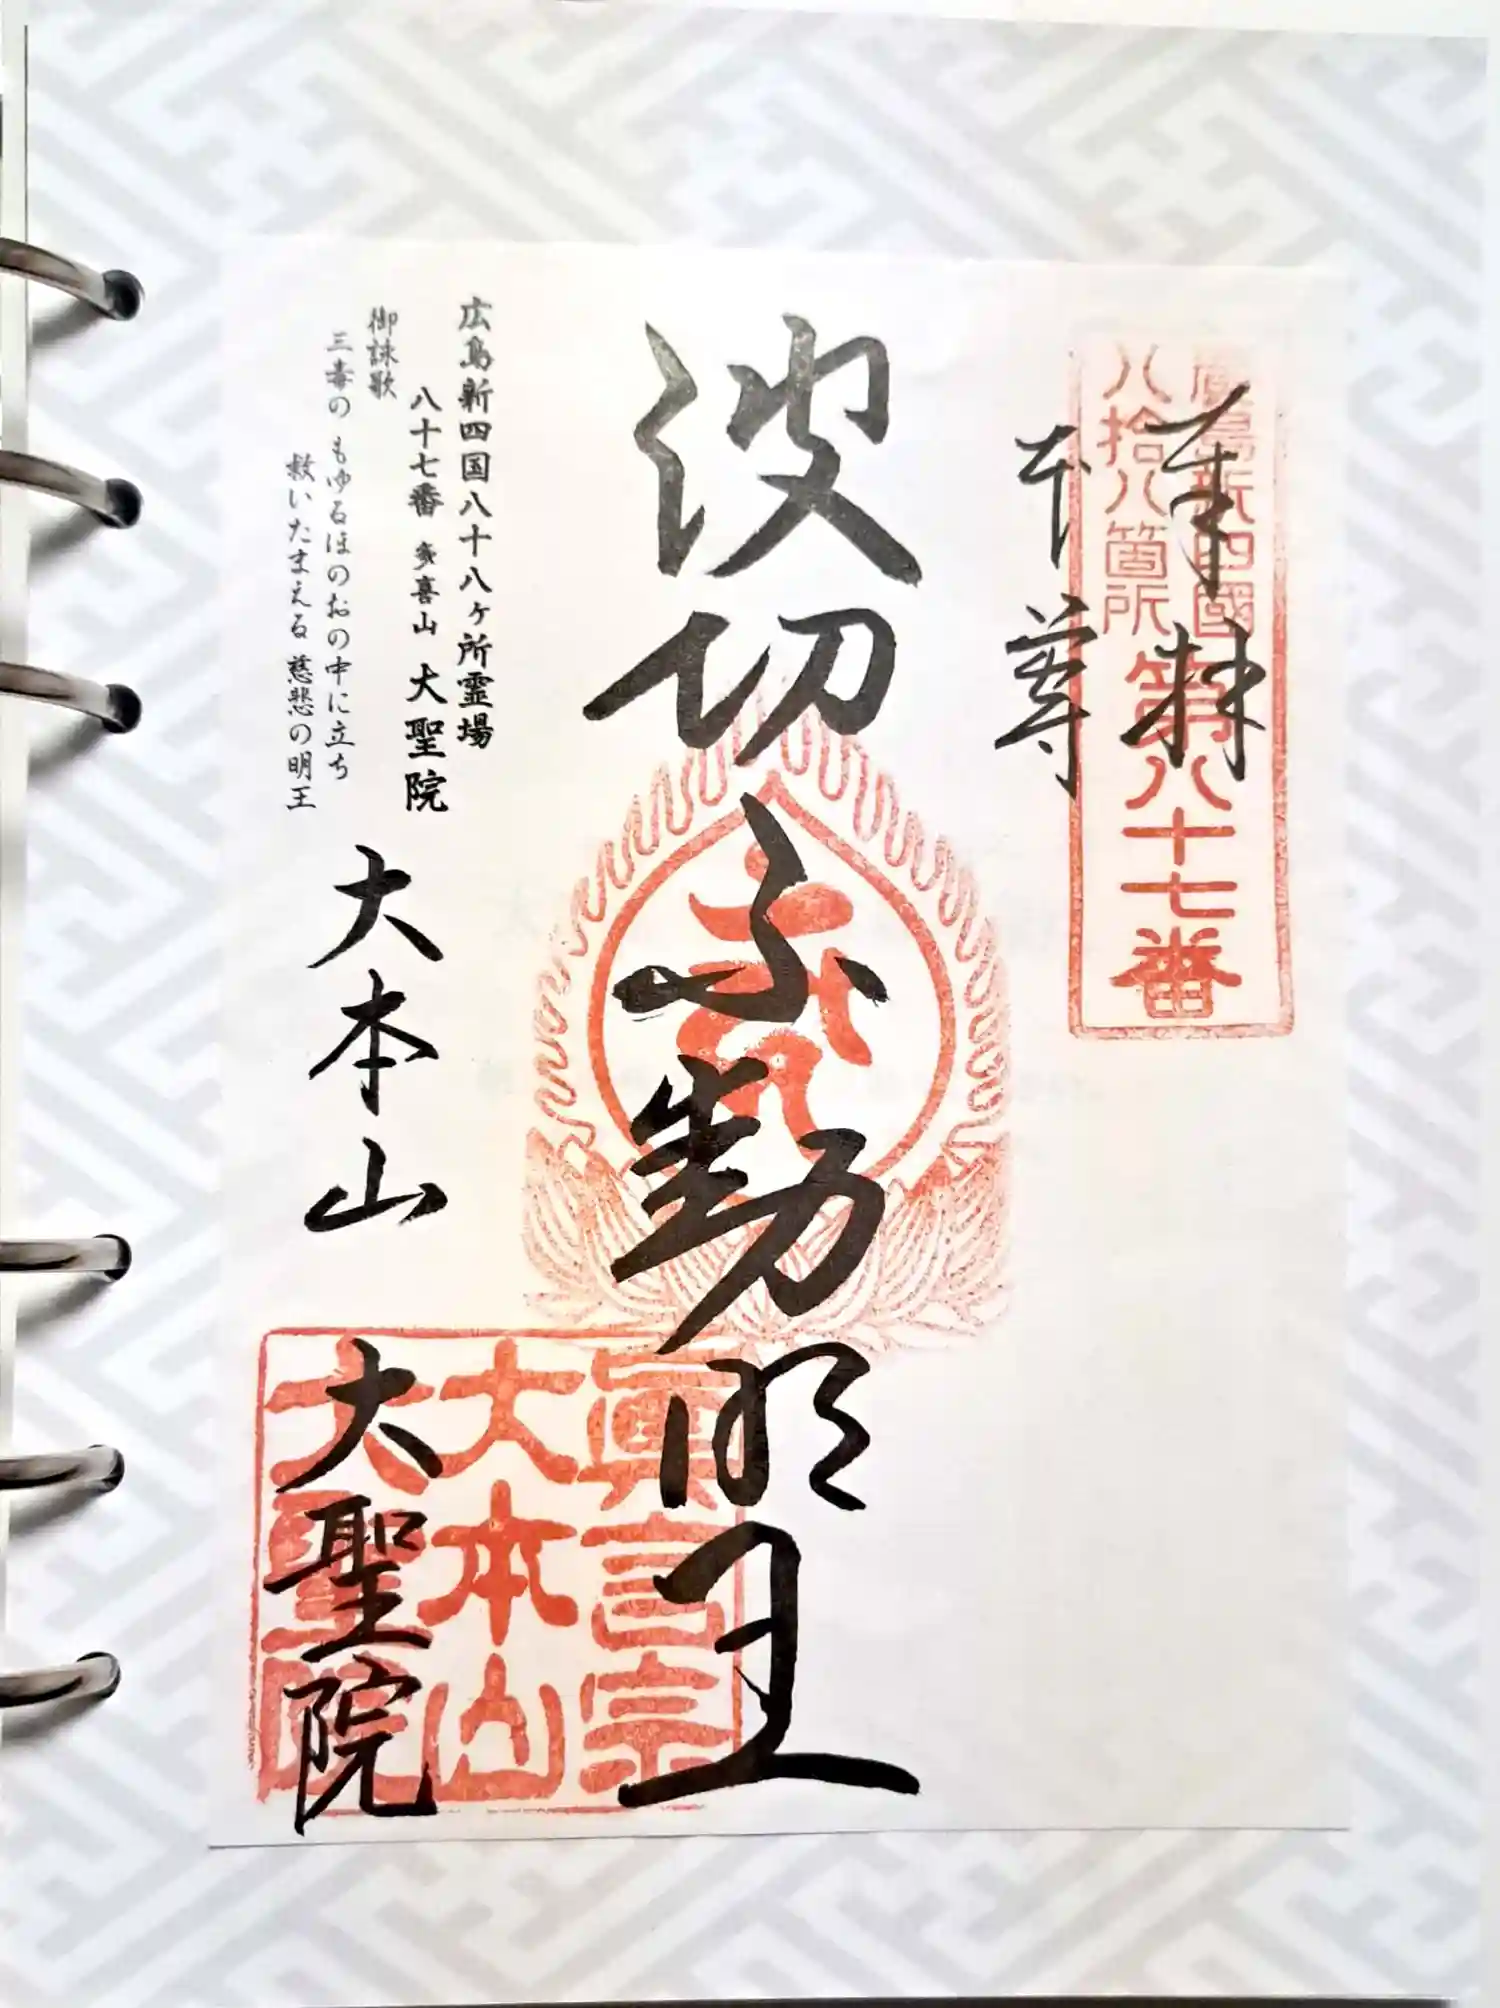 廣島新四國
八拾八箇所
第八十七番
奉拝
本尊
波切不動明王
眞言宗
大本山
大聖院
広島新四国八十八ヶ所霊場
八十七番 多喜山 大聖院
御詠歌
三毒の もゆるほのおの中に立ち
救いたまえる 慈悲の明王
大本山
大聖院